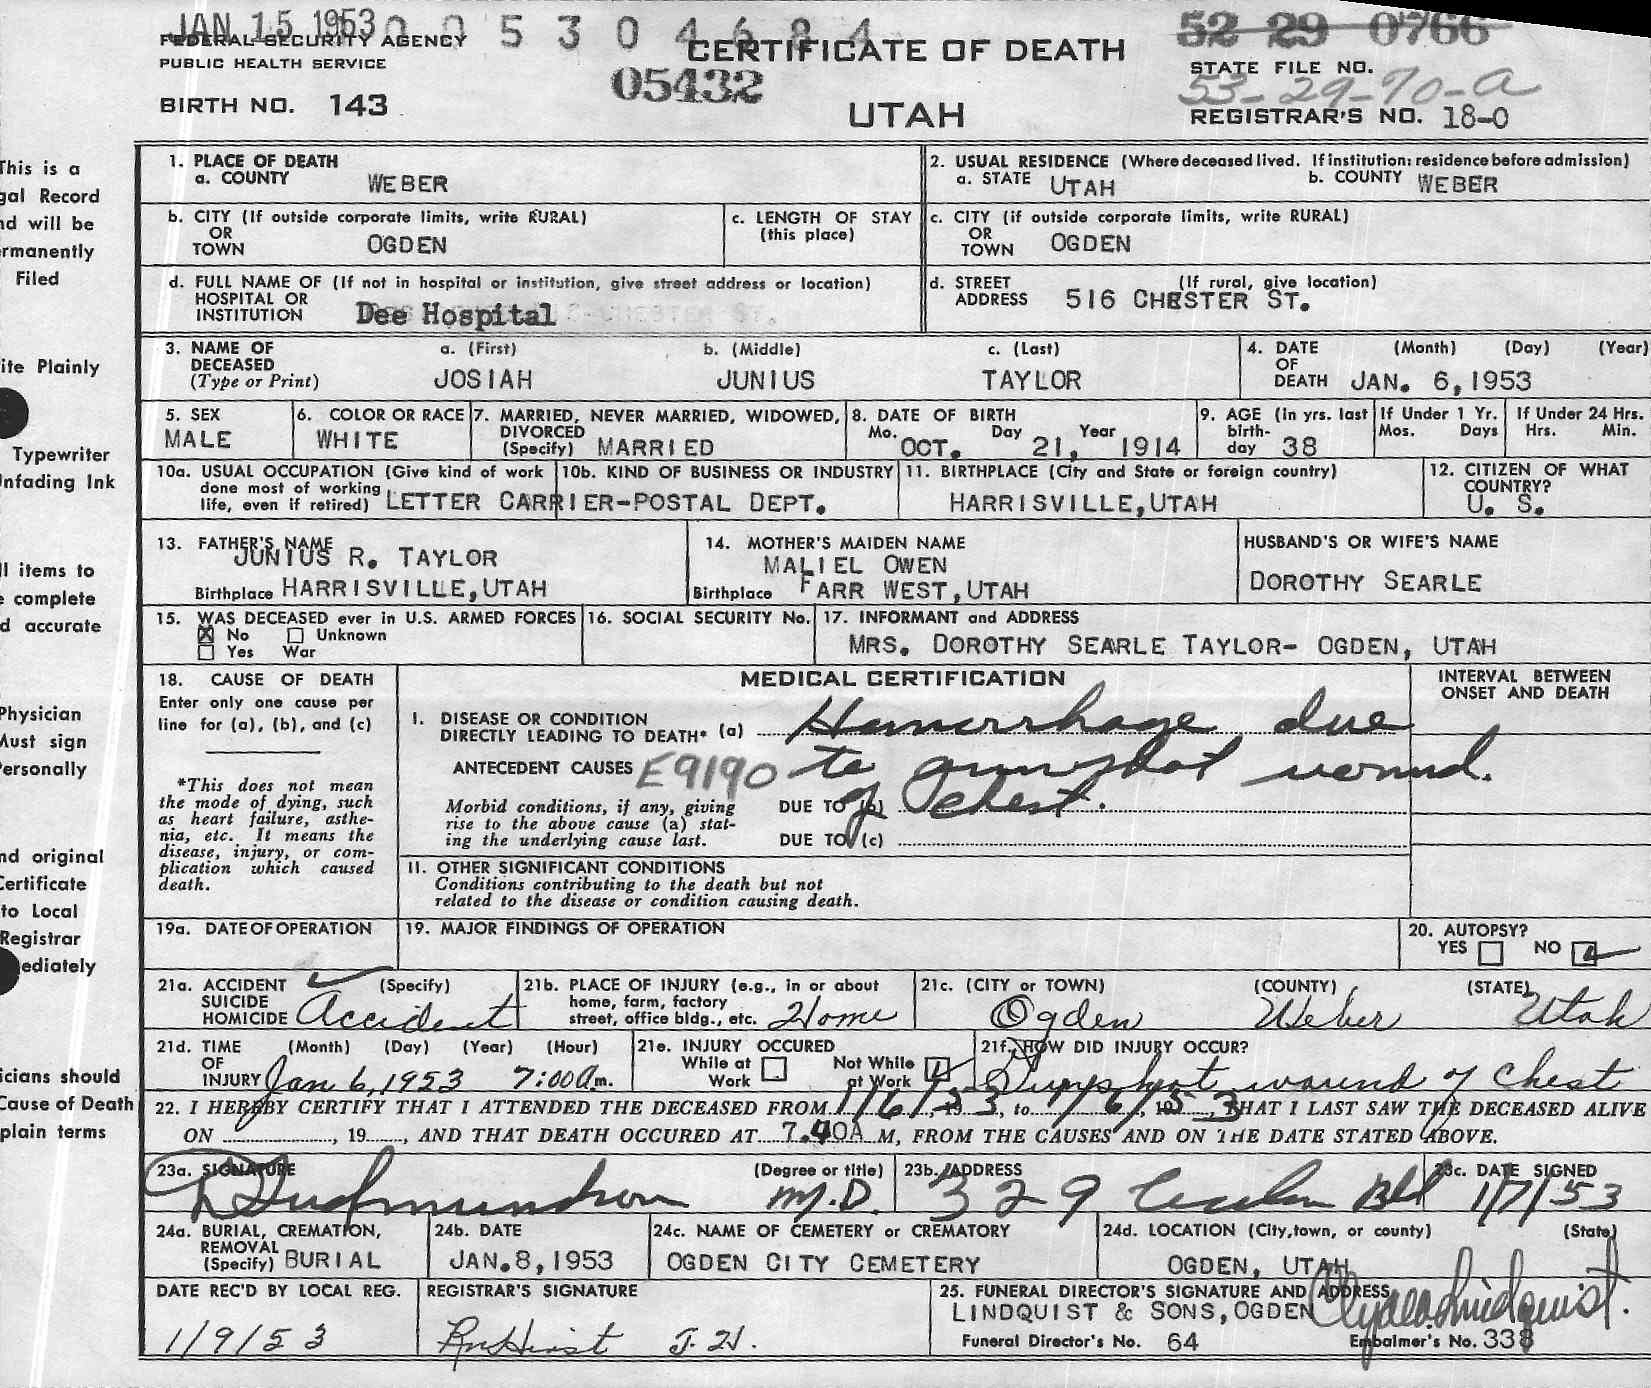 JAN 15 1953 0 0 5 3 0 4 6 8 4
52 29 0766
FEDERAL SECURITY AGENCY
PUBLIC HEALTH SERVICE
CERTIFICATE OF DEATH
05432
STATE FILE NO.
53-29-70-a
BIRTH NO. 143
UTAH
REGISTRAR'S NO. 18-0
This is a
gal Record
nd will be
rmanently
Filed
ite Plainly
Typewriter
nfading Ink
ll items to
e complete
d accurate
Physician
Must sign
Personally
nd original
Certificate
to Local
Registrar
ediately
icians should
Cause of Death
plain terms
1. PLACE OF DEATH
a. COUNTY WEBER
2. USUAL RESIDENCE (Where deceased lived. If institution: residence before admission)
a. STATE UTAH b. COUNTY WEBER
b. CITY (If outside corporate limits, write RURAL)
OR
TOWN OGDEN
c. LENGTH OF STAY
(this place)
c. CITY (if outside corporate limits, write RURAL)
OR
TOWN OGDEN
d. FULL NAME OF (If not in hospital or institution, give street address or location)
HOSPITAL OR
INSTITUTION Dee Hospital
d. STREET (If rural, give location)
ADDRESS 516 CHESTER ST.
3. NAME OF a. (First) b. (Middle) c. (Last)
DECEASED
(Type or Print) JOSIAH JUNIUS TAYLOR
4. DATE (Month) (Day) (Year)
OF
DEATH JAN. 6, 1953
5. SEX
MALE
6. COLOR OR RACE
WHITE
7. MARRIED, NEVER MARRIED, WIDOWED,
DIVORCED
(Specify) MARRIED
8. DATE OF BIRTH
Mo. Day Year
OCT. 21, 1914
9. AGE (In yrs. last
birth-
day 38
If Under 1 Yr.
Mos. Days
If Under 24 Hrs.
Hrs. Min.
10a. USUAL OCCUPATION (Give kind of work
done most of working
life, even if retired) LETTER CARRIER-POSTAL DEPT.
10b. KIND OF BUSINESS OR INDUSTRY
11. BIRTHPLACE (City and State or foreign country)
HARRISVILLE, UTAH
12. CITIZEN OF WHAT
COUNTRY?
U. S.
13. FATHER'S NAME
JUNIUS R. TAYLOR
Birthplace HARRISVILLE, UTAH
14. MOTHER'S MAIDEN NAME
MALIEL OWEN
Birthplace FARR WEST, UTAH
HUSBAND'S OR WIFE'S NAME
DOROTHY SEARLE
15. WAS DECEASED ever in U.S. ARMED FORCES
☒ No ☐ Unknown
☐ Yes War
16. SOCIAL SECURITY No.
17. INFORMANT and ADDRESS
MRS. DOROTHY SEARLE TAYLOR- OGDEN, UTAH
18. CAUSE OF DEATH
Enter only one cause per
line for (a), (b), and (c)
*This does not mean
the mode of dying, such
as heart failure, asthe-
nia, etc. It means the
disease, injury, or com-
plication which caused
death.
MEDICAL CERTIFICATION
INTERVAL BETWEEN
ONSET AND DEATH
I. DISEASE OR CONDITION
DIRECTLY LEADING TO DEATH* (a) Hemorrhage due
ANTECEDENT CAUSES E9190 to gunshot wound.
Morbid conditions, if any, giving DUE TO (b) of chest.
rise to the above cause (a) stat-
ing the underlying cause last. DUE TO (c)
II. OTHER SIGNIFICANT CONDITIONS
Conditions contributing to the death but not
related to the disease or condition causing death.
19a. DATE OF OPERATION
19. MAJOR FINDINGS OF OPERATION
20. AUTOPSY?
YES ☐ NO ☑
21a. ACCIDENT (Specify)
SUICIDE
HOMICIDE Accident
21b. PLACE OF INJURY (e.g., in or about
home, farm, factory
street, office bldg., etc. Home
21c. (CITY or TOWN) (COUNTY) (STATE)
Ogden Weber Utah
21d. TIME (Month) (Day) (Year) (Hour)
OF
INJURY Jan 6, 1953 7:00 A m.
21e. INJURY OCCURED
While at ☐ Not While ☑
Work at Work
21f. HOW DID INJURY OCCUR?
Gunshot wound of chest
22. I HEREBY CERTIFY THAT I ATTENDED THE DECEASED FROM 1/6/, 1953, to 1/6/, 1953, THAT I LAST SAW THE DECEASED ALIVE
ON , 19 , AND THAT DEATH OCCURED AT 7.40A M, FROM THE CAUSES AND ON THE DATE STATED ABOVE.
23a. SIGNATURE (Degree or title)
Gudmundson M.D.
23b. ADDRESS
329 Bld
23c. DATE SIGNED
1/7/53
24a. BURIAL, CREMATION,
REMOVAL
(Specify) BURIAL
24b. DATE
JAN. 8, 1953
24c. NAME OF CEMETERY or CREMATORY
OGDEN CITY CEMETERY
24d. LOCATION (City, town, or county) (State)
OGDEN, UTAH
DATE REC'D BY LOCAL REG.
1/9/53
REGISTRAR'S SIGNATURE
Hirst J.H.
25. FUNERAL DIRECTOR'S SIGNATURE AND ADDRESS
LINDQUIST & SONS, OGDEN Clyde Lindquist.
Funeral Director's No. 64 Embalmer's No. 338